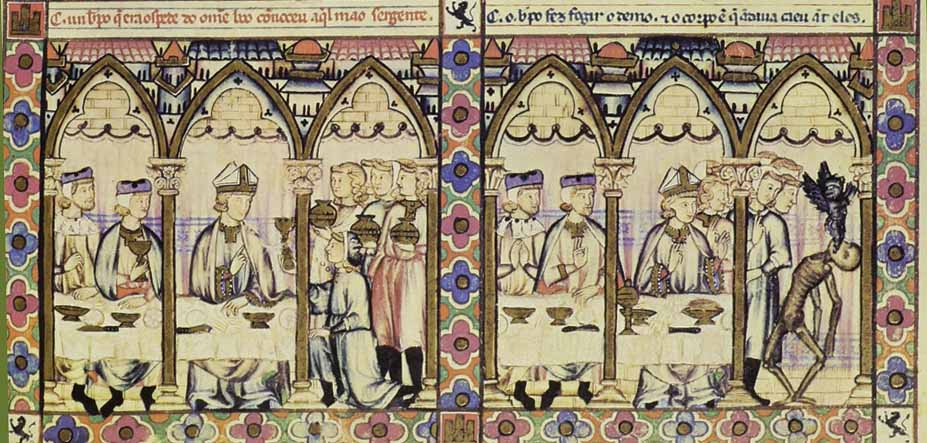 C. un bp̄o q̄ era ospede do om̄e boo con̄oceu aq̄l mao sergente.
C. o. bp̄o fez fogir o demo. ⁊ o corpo ē q̄ andaua caeu ant eles.